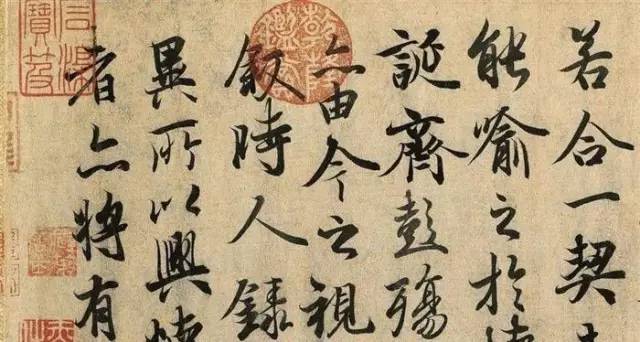 若合一契
能喻之於
誕齊彭殤
亦由今之視
叙時人錄
異所以興懷
者亦將有